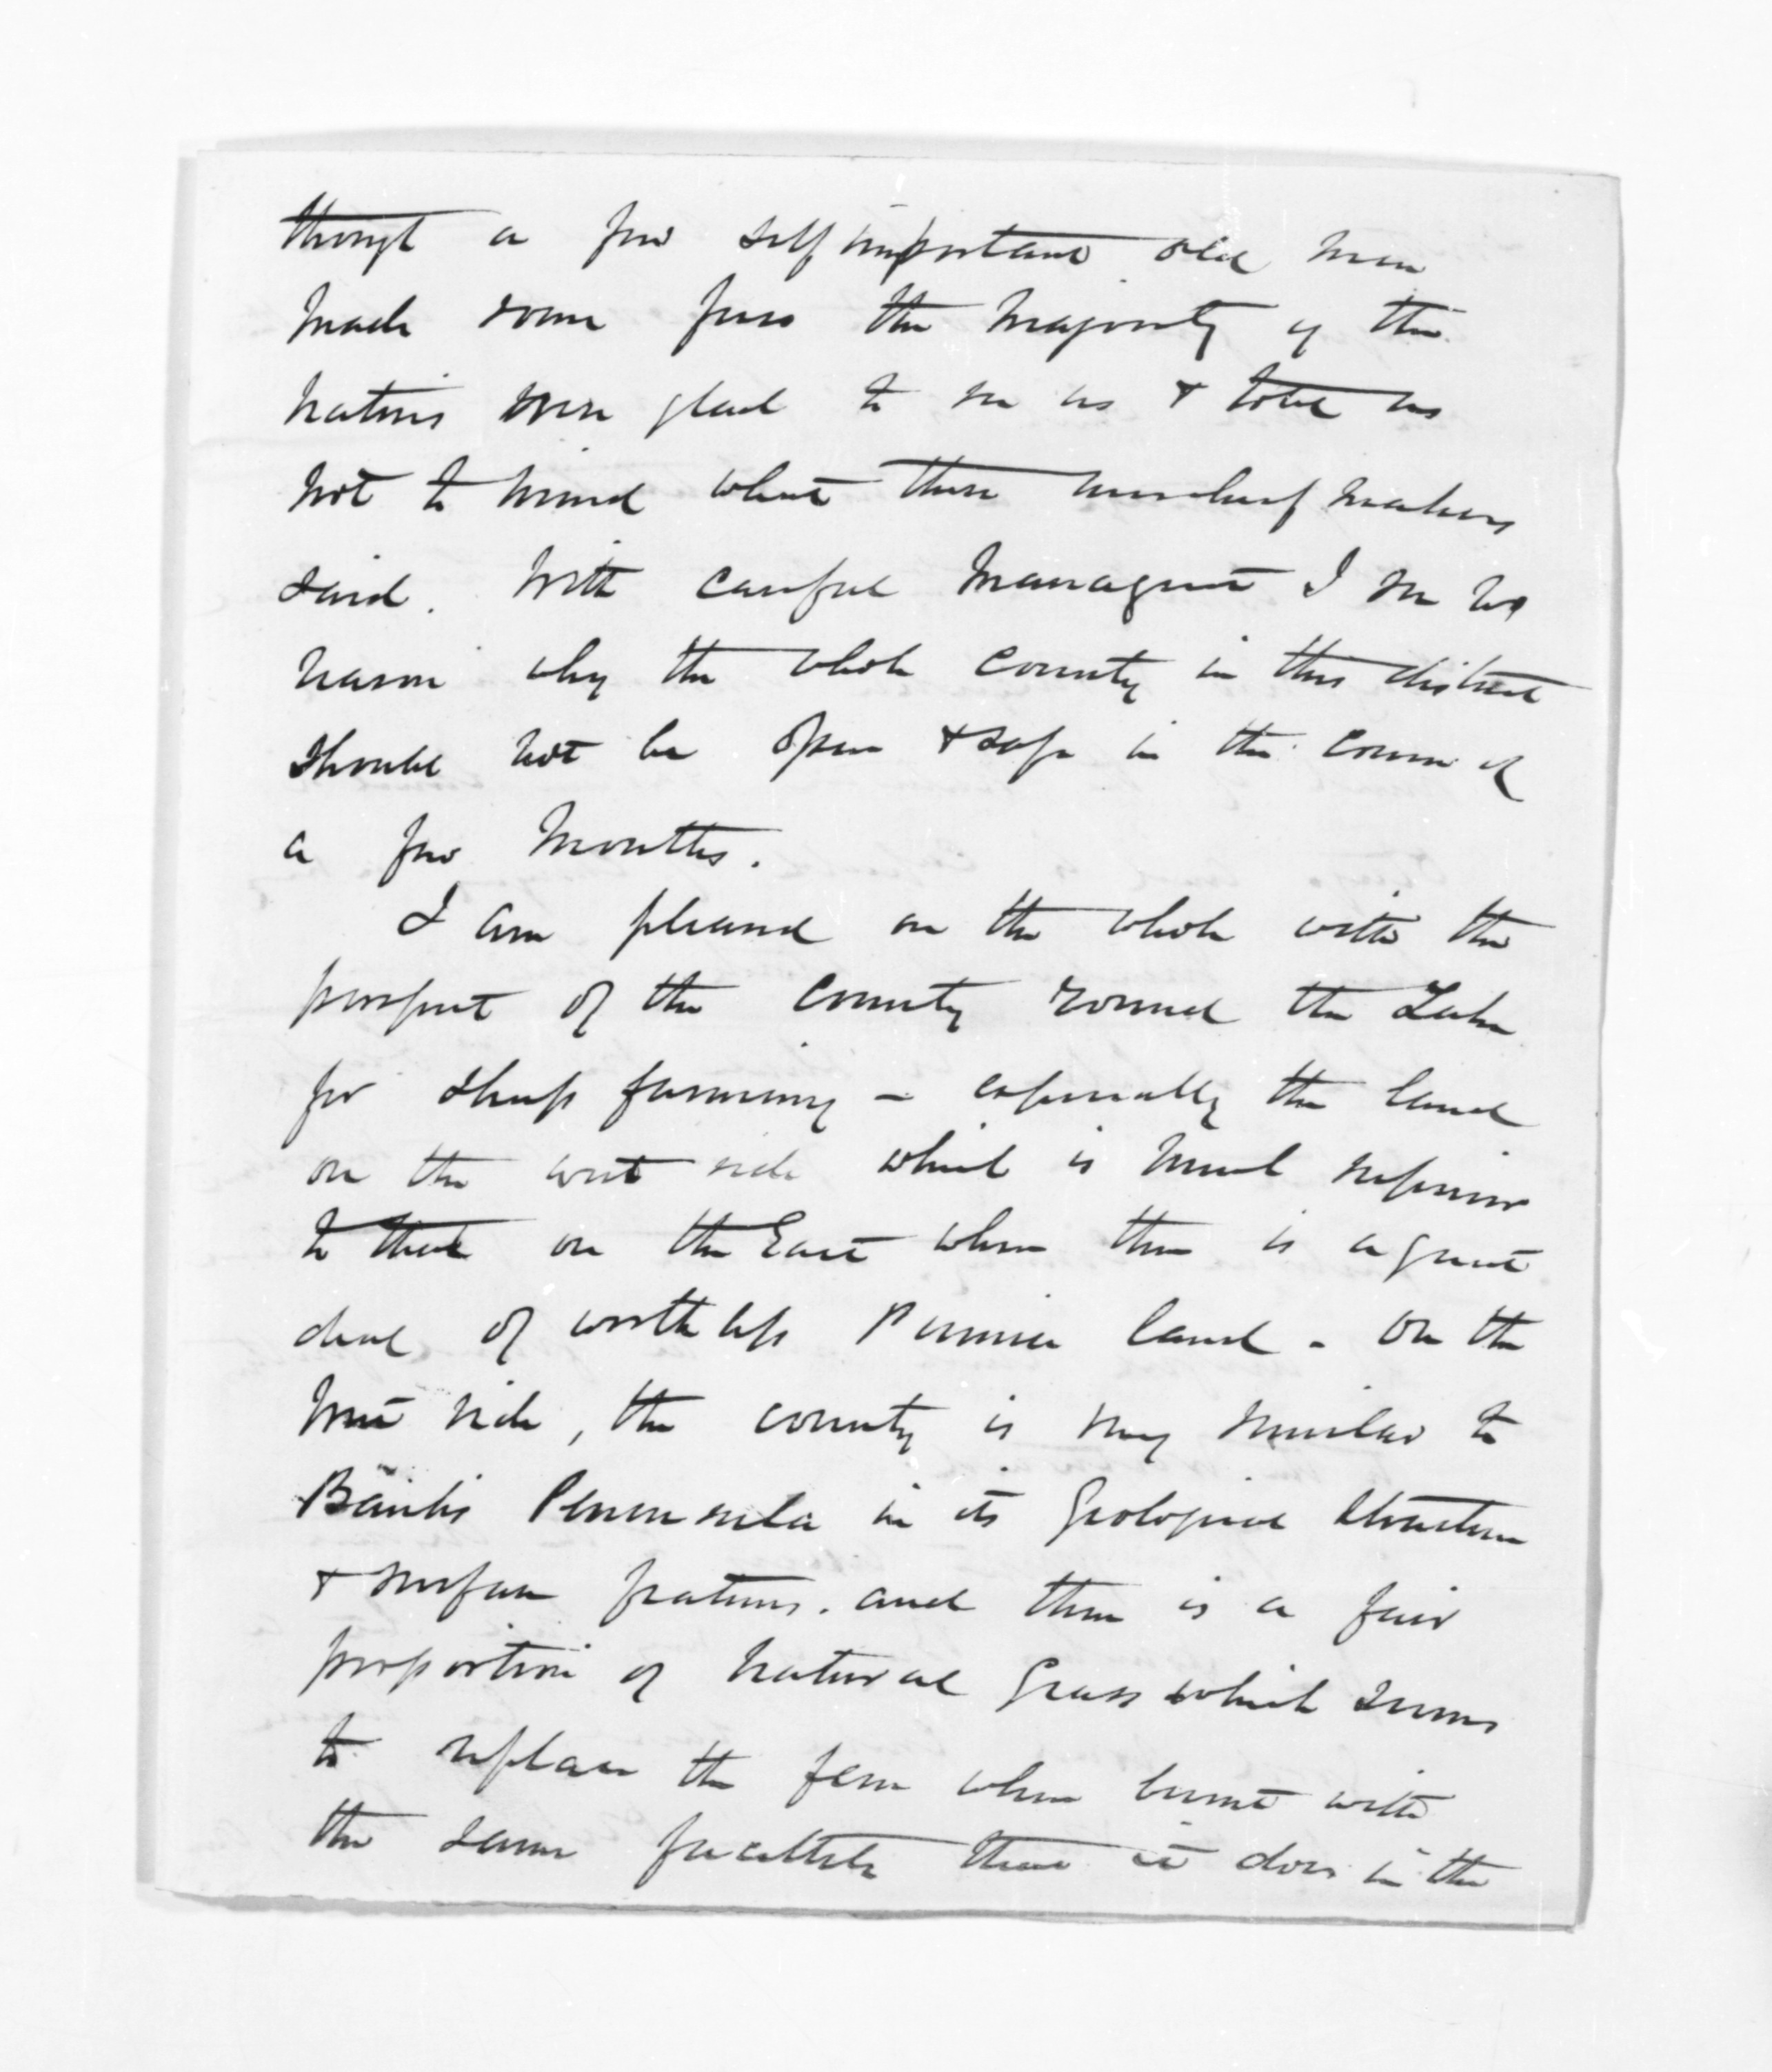 though a few self important old men
made some fuss the majority of the
natives were glad to see us & told us
not to mind what these mischief makers
said. With careful managemt I see no
reason why the whole country in this district
should not be open & safe in the course of
a few months.
I am pleased on the whole with the
prospect of the country round the Lake
for sheep farming - especially the land
on the west side which is much superior
to that on the East where there is a great
deal of worthless Pumice land. On the
West side, the country is very similar to
Banks Peninsula in its Geological structure
& surface features. and there is a fair
proportion of natural Grass which seems
to replace the fern when burnt with
the same that it does in the